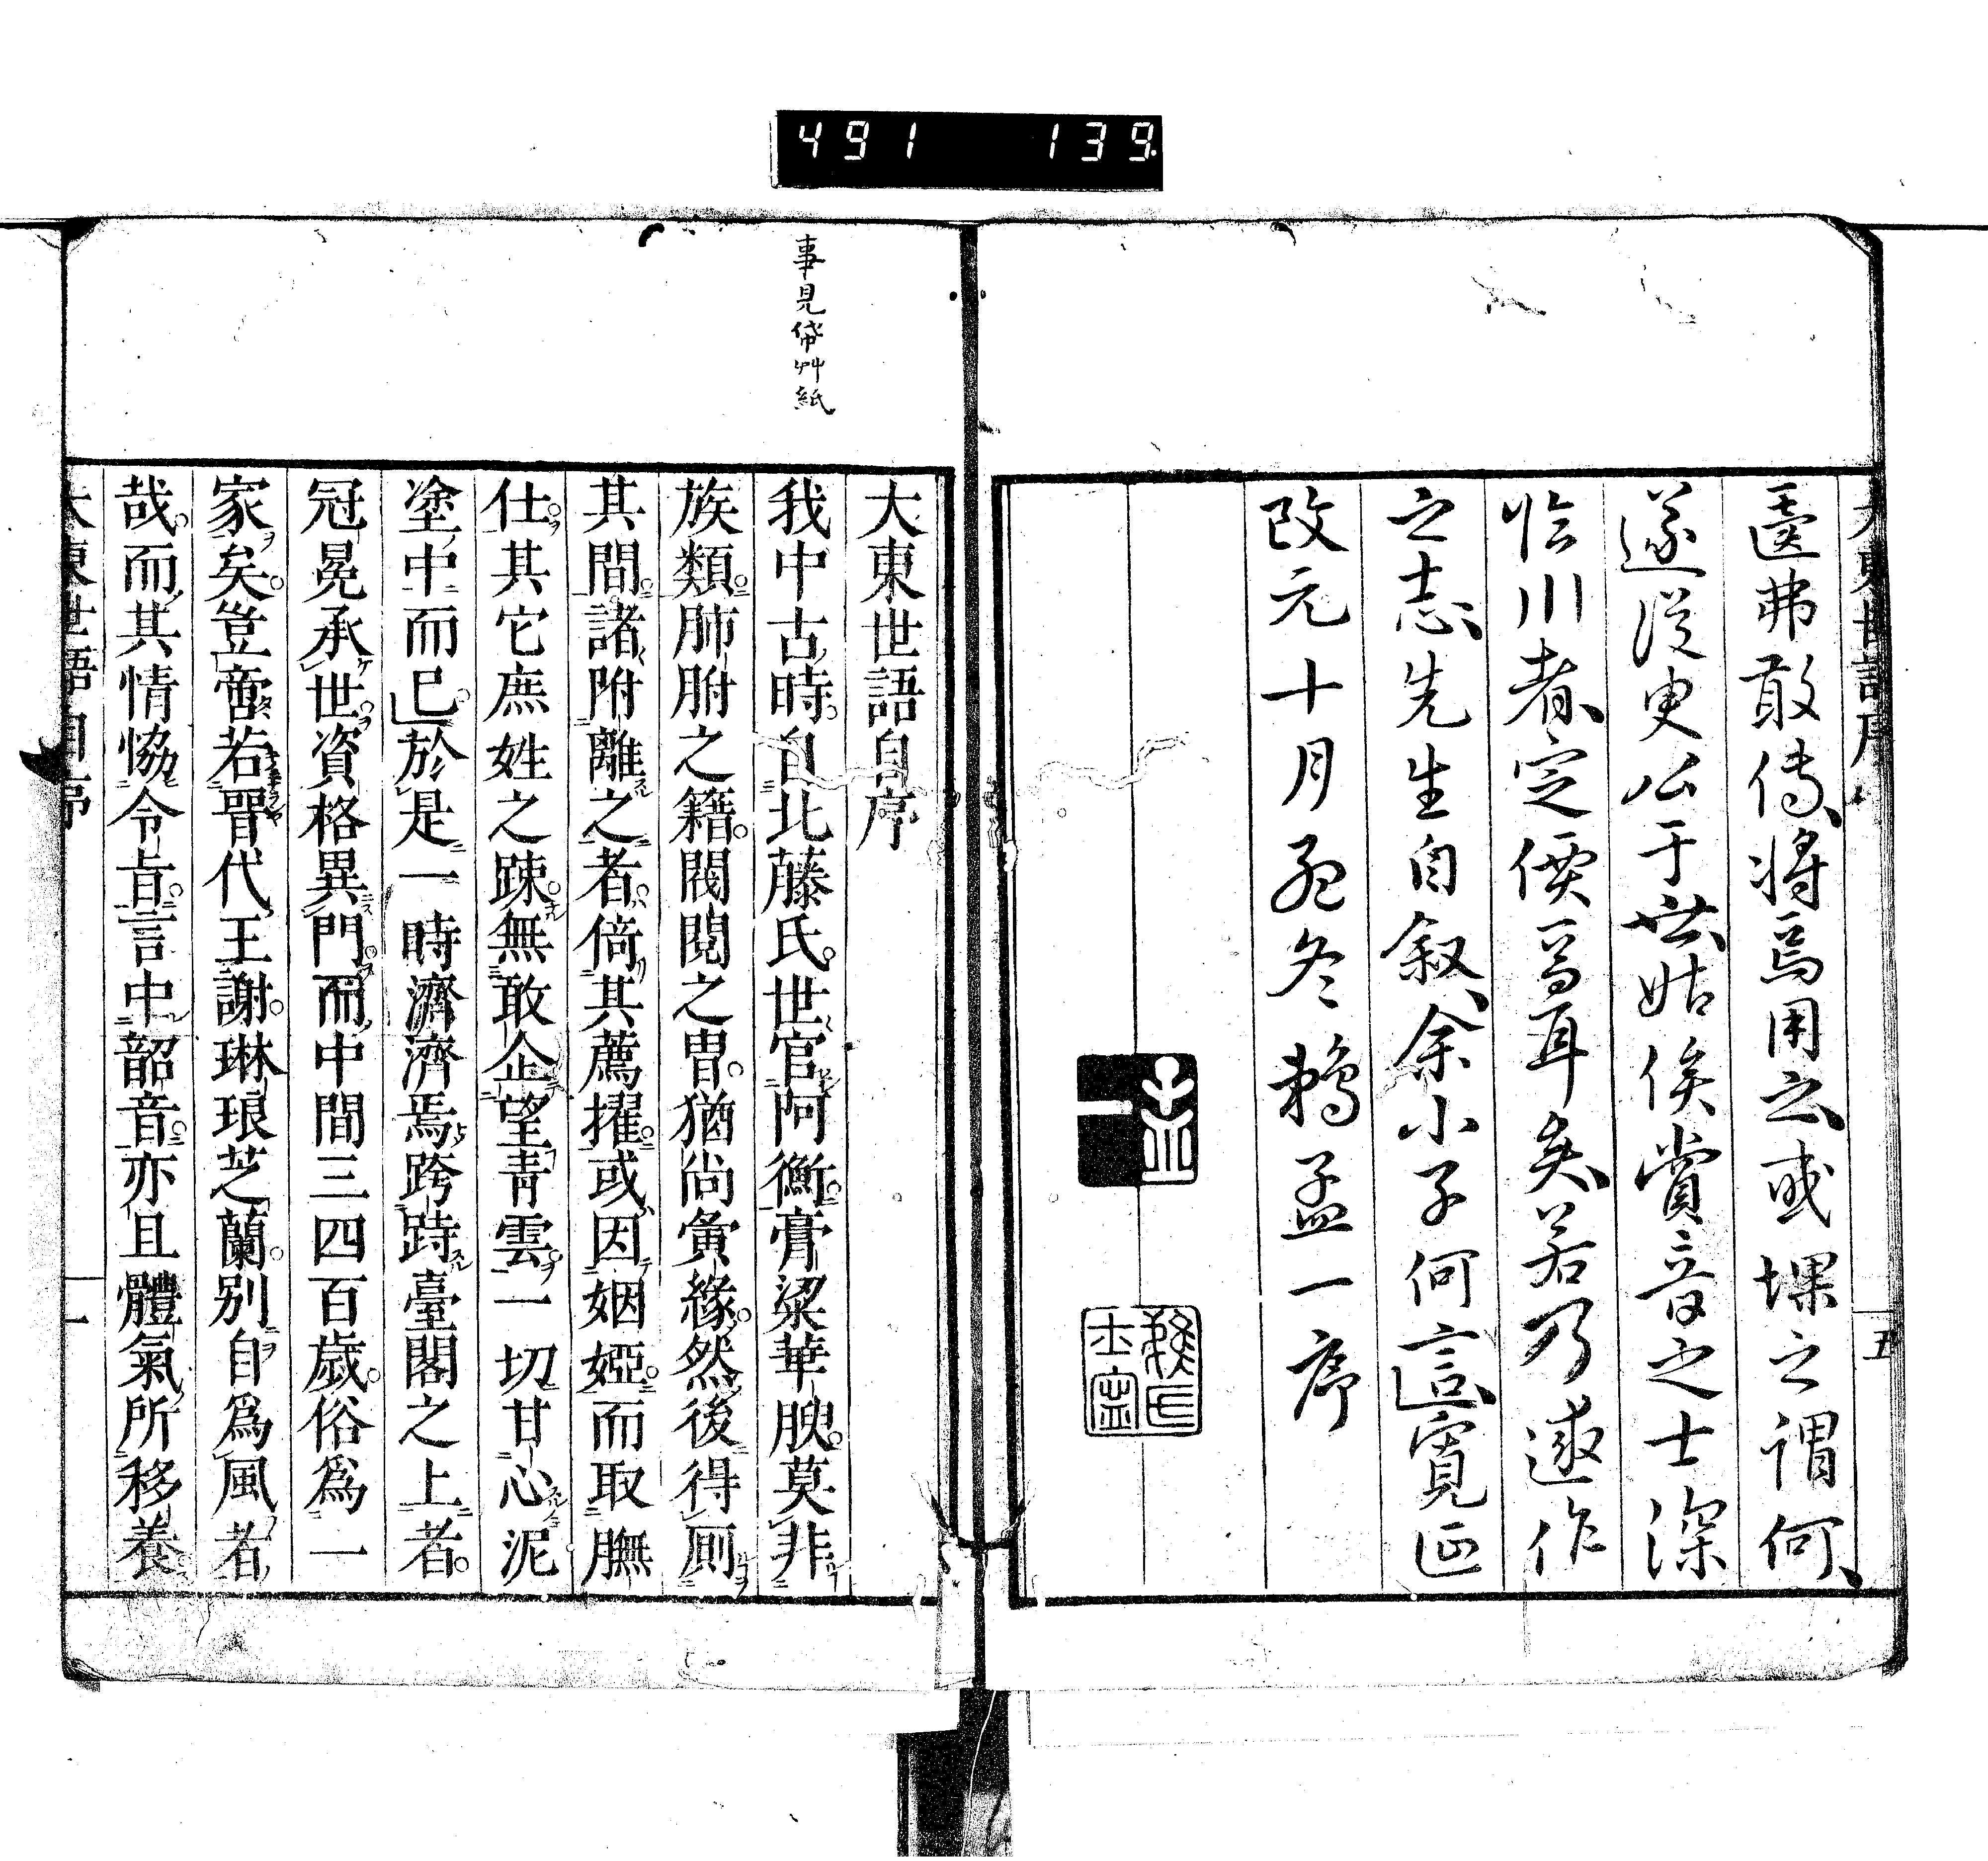 491 139
大東世語序
五
匱弗敢傳將焉用之或堁之謂何
遂從史公于世姑俟賞音之士深
恰川者定價焉耳矣若乃遂作
之志先生自叙余小子何言寬延
改元十月孟冬鵜孟一序
事見袋艸紙
大東世語自序
我中古時自北藤氏世官阿衡膏粱華腴莫非
族類肺胕之籍閥閱之胄猶尚夤緣然後得厠
其間諸附離之者倚其薦擢或因姻婭而取膴
仕其它庶姓之踈無敢企望青雲一切甘心泥
塗中而已於是一時濟濟焉跨跱臺閣之上者
冠冕承世資格異門而中間三四百歲俗爲一
家矣豈啻若晉代王謝琳琅芝蘭別自爲風者
哉而其情恊令旨言中韶音亦且體氣所移養
大東世語自序
一